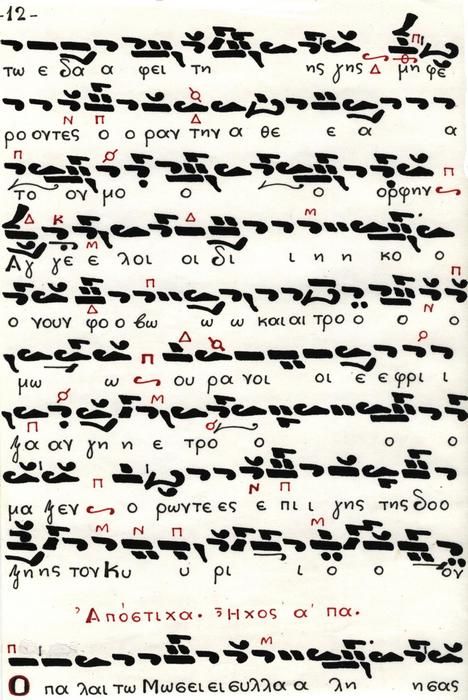 -12-
τω ε δα α φει τη ης γης μη φε
ρο οντες ο ο ραν την α θε ε α α
το ου μο ο ο ορφην
Αγ γε ε λοι οι δι ι η η κο ο
ο νουν φο ο βω ω ω και αι τρο ο ο ο
μω ω ου ρα νοι οι ε ε φρι ι
ξα αν γη η ε τρο ο ο ο
μα ξεν ο ρωντε ες ε πι ι γης της δοο
ξης τον Κυ υ ρι ι ο ο ον
Ἀπόστιχα. Ἦχος α' πα.
Ο πα λαι τω Μωσει ει συλλα α λη ησας